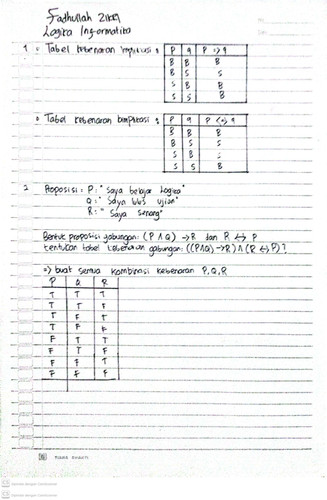 Fadhullah Zikri
Logika Informatika
1. o Tabel kebenaran implikasi :
P q P => q
B B B
B S S
S B B
S S B
o Tabel kebenaran biimplikasi :
P q P <=> q
B B B
B S S
S B S
S S B
2. Proposisi : P : "Saya belajar Logika"
Q : "Saya lulus Ujian"
R : "Saya Senang"
Bentuk proposisi gabungan: (P ∧ Q) → R dan R ↔ P
tentukan tabel kebenaran gabungan: ((P∧Q) → R) ∧ (R ↔ P) ?
o) buat semua kombinasi kebenaran P, Q, R
P Q R
T T T
T T F
T F T
T F F
F T T
F T F
F F T
F F F